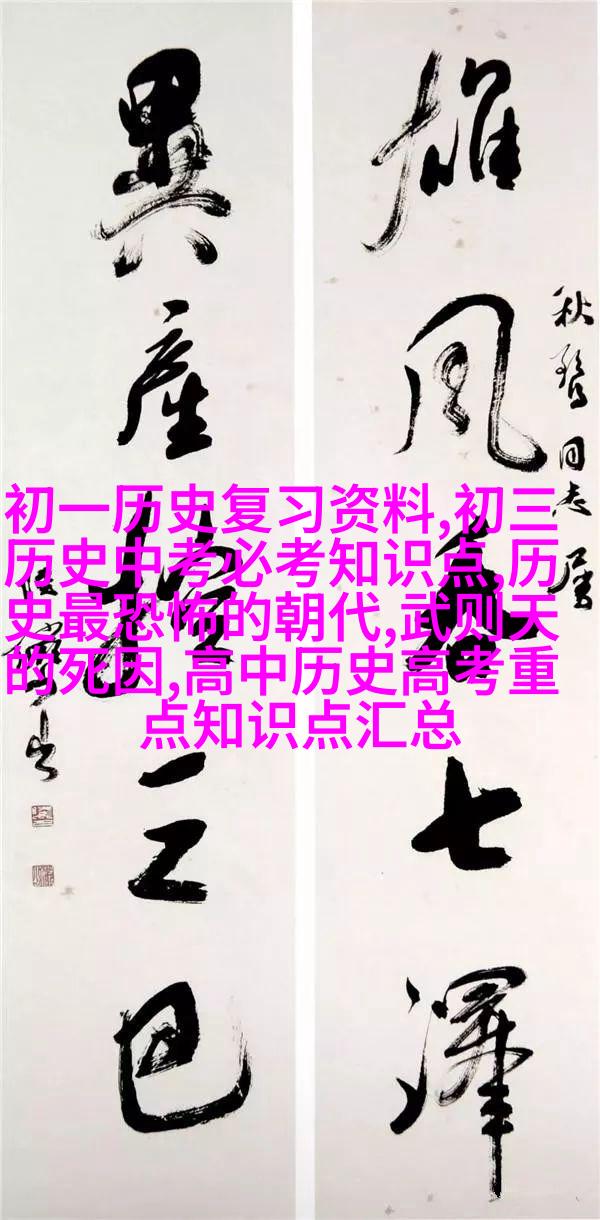 初一历史复习资料,初三
历史中考必考知识点,历
史最恐怖的朝代,武则天
的死因,高中历史高考重
点知识点汇总
秋 同志属
雄风 七澤
異產控三巴